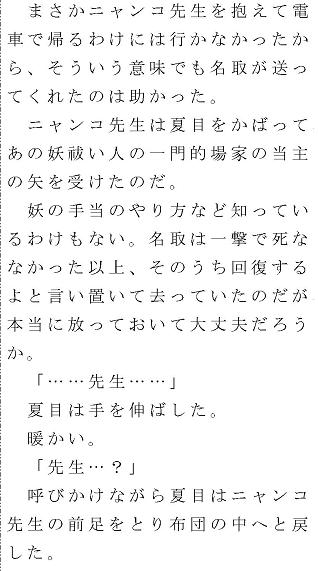 まさかニャンコ先生を抱えて電
車で帰るわけには行かなかったか
ら、そういう意味でも名取が送っ
てくれたのは助かった。
　ニャンコ先生は夏目をかばって
あの妖祓い人の一門的場家の当主
の矢を受けたのだ。
　妖の手当のやり方など知ってい
るわけもない。名取は一撃で死な
なかった以上、そのうち回復する
よと言い置いて去っていたのだが
本当に放っておいて大丈夫だろう
か。
　「……先生……」
　夏目は手を伸ばした。
　暖かい。
　「先生…？」
　呼びかけながら夏目はニャンコ
先生の前足をとり布団の中へと戻
した。